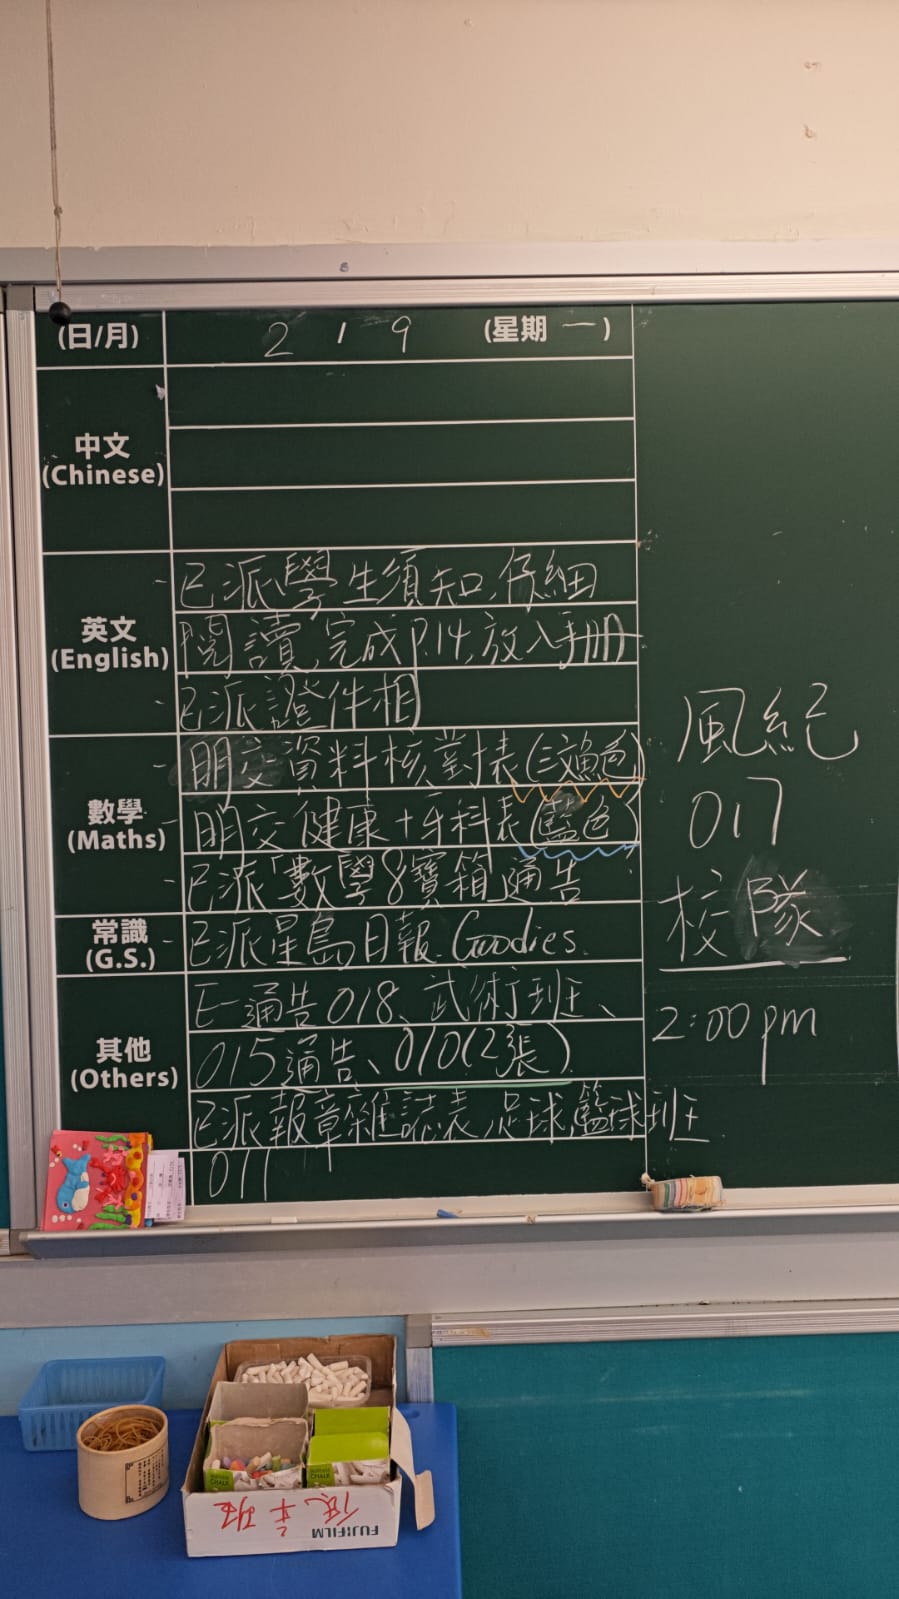 (日/月) 2 1 9 (星期 一)
中文
(Chinese)
英文
(English)
- 已派學生須知,仔細
閱讀,完成P.14,放入手冊
- 已派證件相
數學
(Maths)
- 明交資料核對表(三文魚色)
- 明交健康+牙科表(藍色)
- 已派「數學8寶箱」通告
常識
(G.S.)
- 已派星島日報.Goodies.
其他
(Others)
E-通告018、武術班、
015通告、010(2張)
已派報章雜誌表,足球,籃球班
011
風紀
017
校隊
2:00pm
CHALK
CHALK
FUJIFILM